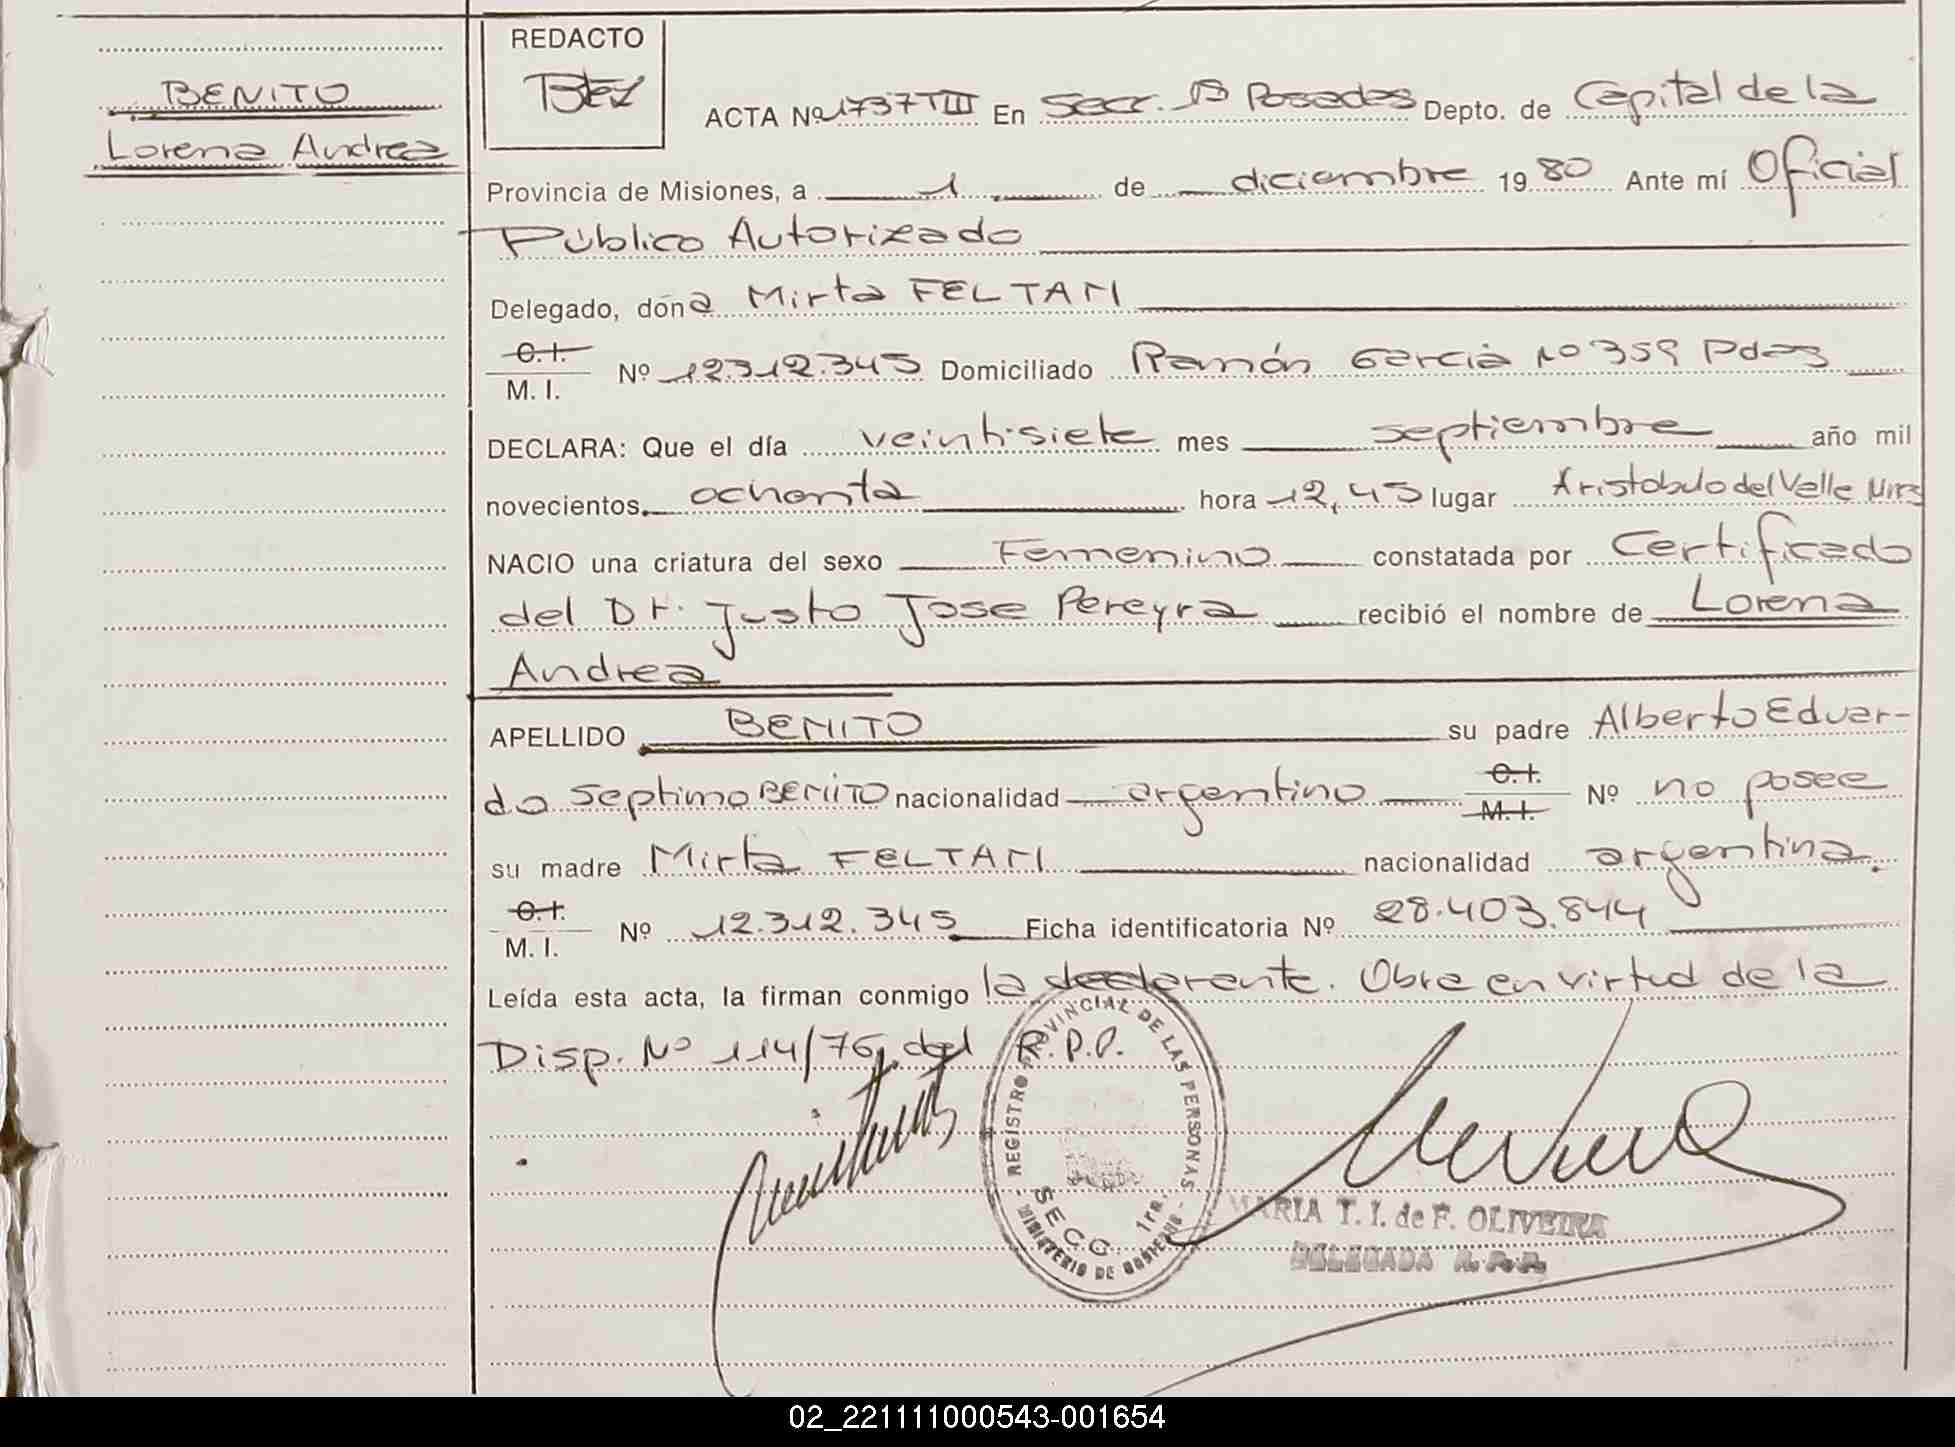 BENITO
Lorena Andrea
REDACTO
ACTA Nº 1737 TIII En Secr. 1ª Posadas Depto. de Capital de la
Provincia de Misiones, a 1 de diciembre 1980 Ante mí Oficial
Público Autorizado
Delegado, doña Mirta FELTAN
C. I.
M. I. Nº 12.312.345 Domiciliado Ramón Garcia Nº 359 Pdas
DECLARA: Que el día veintisiete mes septiembre año mil
novecientos ochenta hora 12,45 lugar Aristobulo del Valle Mnes
NACIO una criatura del sexo Femenino constatada por Certificado
del Dr. Justo Jose Pereyra recibió el nombre de Lorena
Andrea
APELLIDO BENITO su padre Alberto Eduar-
do Septimo BENITO nacionalidad argentino C. I. M. I. Nº no posee
su madre Mirta FELTAN nacionalidad argentina.
C. I.
M. I. Nº 12.312.345 Ficha identificatoria Nº 28.403.844
Leída esta acta, la firman conmigo la declarante. Obra en virtud de la
Disp. Nº 114/76 del R.P.P.
REGISTRO PROVINCIAL DE LAS PERSONAS
SECC. 1ra.
MINISTERIO DE GOBIERNO
MARIA T. I. de F. OLIVEIRA
DELEGADA R.P.P.
02_221111000543-001654